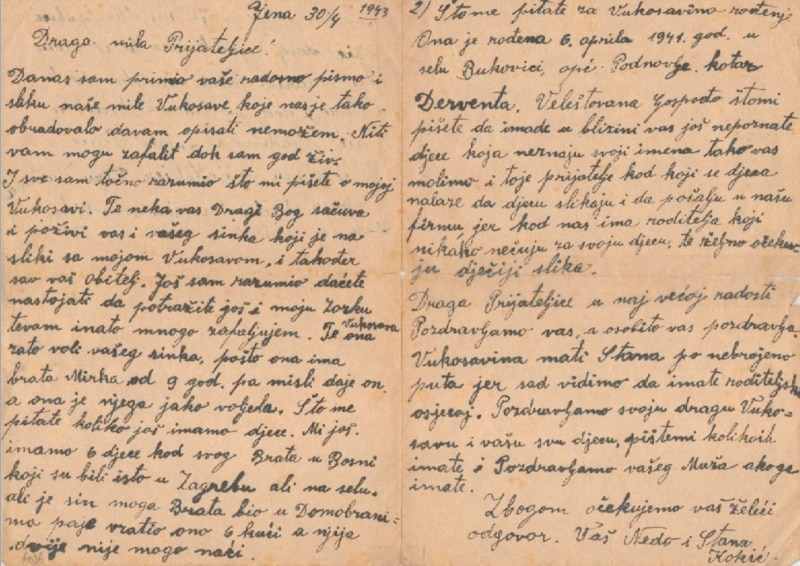 Jena 30/4 1943
Draga mila Prijateljice!
Danas sam primio vaše radosno pismo i
sliku, naše mile Vukosave, koje nas je tako
obradovalo da vam opisati nemožem. Niti
vam mogu zafalit doh sam god živ.
I sve sam točno razumio što mi pišete o mojoj
Vukosavi. Te neka vas Dragi Bog sačuva
i poživi vas i vašeg sinka koji je na
sliki sa mojom Vukosavom, i također
sav vaš Obitelj. Još sam razumio daćete
nastojati da potražite još i moju Zorku
te vam i na to mnogo zafaljujem. Te ona Vukosava
zato voli vašeg sinka, pošto ona ima
brata Mirka od 9 god, pa misli daje on,
a ona je njega jako voljela. Što me
pitate koliko još imamo djece. Mi još
imamo 6 djece kod svog Brata u Bosni
koji su bili isto u Zagrebu ali na selu,
ali je sin moga Brata bio u Domobrani-
ma paje vratio ono 6 kući a njija
dvije nije mogo naći.
2) Što me pitate za Vukosavino rođenje
Ona je rođena 6. aprila 1941. god. u
selu Bukovici, opć. Podnovlje kotar
Derventa. Veleštovana Gospođo štomi
pišete da imade u blizini vas još nepoznate
djece koja neznaju svoji imena tako vas
molimo i toje prijatelje kod koji se djeca
nalaze da djecu slikaju i da pošalju u našu
firmu jer kod nas ima roditelja koji
nikako nečuju za svoju djecu, te željno očeku-
ju dječiji slika.
Draga Prijateljice u naj većoj radosti
Pozdravljamo vas, a osobito vas pozdravlja
Vukosavina mati Stana po nebrojeno
puta jer sad vidimo da imate roditeljski
osjećaj. Pozdravljamo svoju dragu Vuko-
savu i vašu svu djecu, pištemi kolikoih
imate i Pozdravljamo vašeg Muža akoga
imate.
Zbogom očekujemo vaš želeći
odgovor. Vaš Neđo i Stana
Kokić